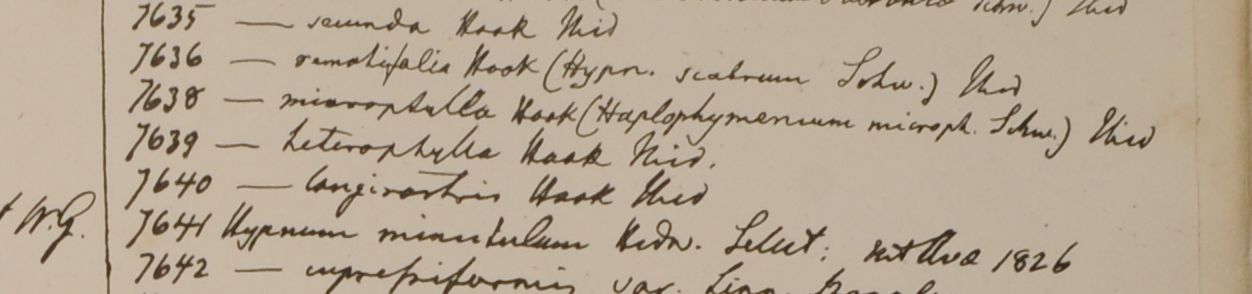 Schw.) Ibid
7635 — secunda Hook Ibid
7636 — remotifolia Hook (Hypn. scabrum Schw.) Ibid
7638 — microphylla Hook (Haplophymenium microph. Schw.) Ibid
7639 — heterophylla Hook Ibid.
7640 — longirostris Hook Ibid
t W.G.
7641 Hypnum minutulum Hedw. Silhet: 1826
7642 — cupressiformis var. Linn.